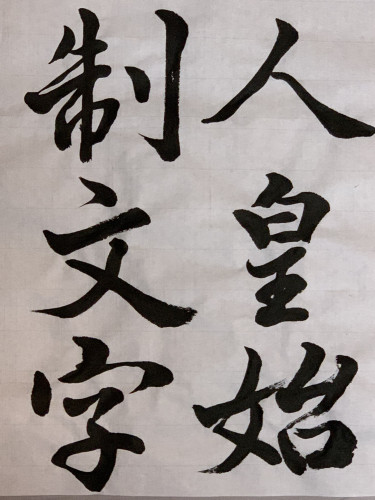 人皇始
制文字